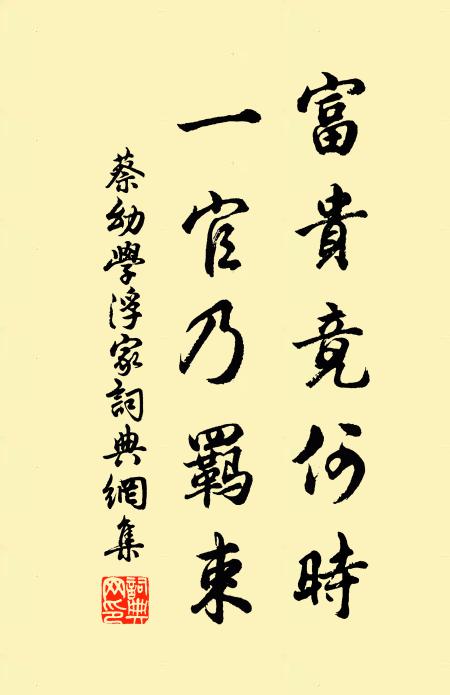 富貴竟何時
一官乃羈束
蔡幼學浮家詞典網集
詞典网印